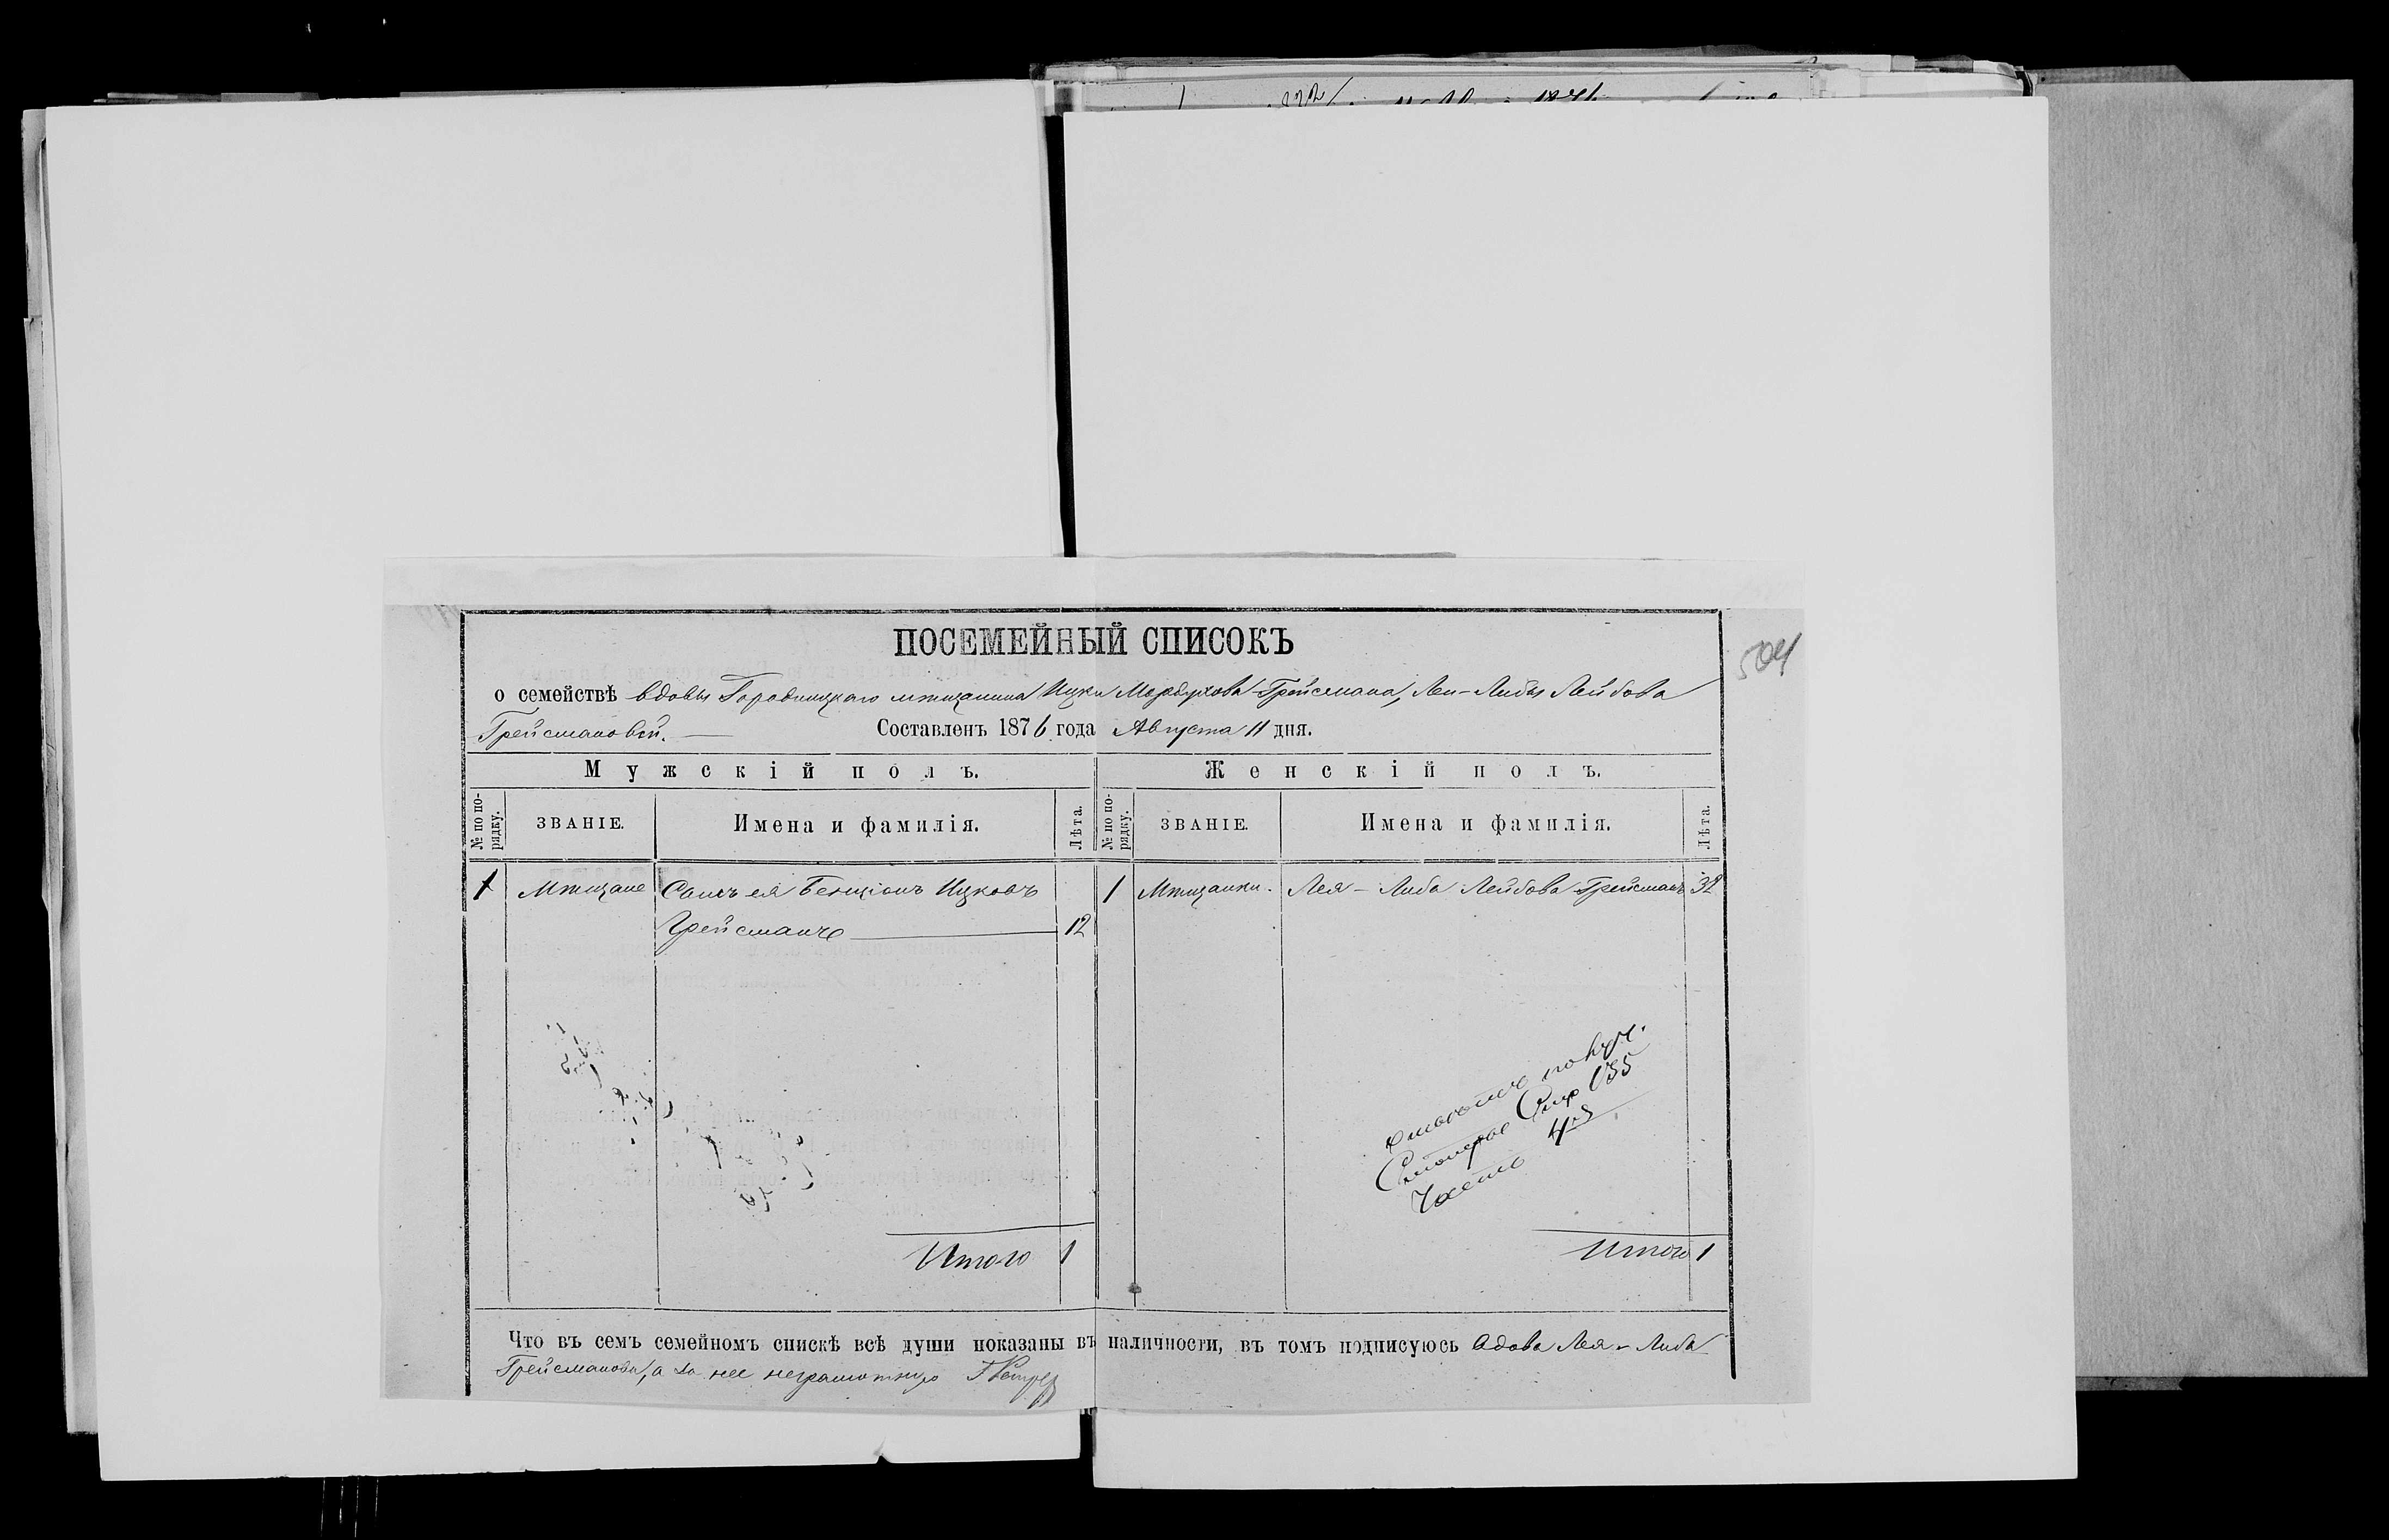 504
ПОСЕМЕЙНЫЙ СПИСОКЪ
о семействѣ вдовы Городницкаго мѣщанина Ицки Мордухова Грейсмана, Леи-Либы Лейбова
Грейсмановой. Составленъ 1876 года Августа 11 дня.
Мужскій полъ. Женскій полъ.
№ по порядку. ЗВАНІЕ. Имена и фамилія. Лѣта. № по порядку. ЗВАНІЕ. Имена и фамилія. Лѣта.
1 Мѣщане Сынъ ея Бенціонъ Ицковъ 1 Мѣщанки. Лея-Либа Лейбова Грейсманъ 32
Грейсманъ 12
Часть 4
Итого 1 Итого 1
Что въ семъ семейномъ спискѣ всѣ души показаны въ наличности, въ томъ подписуюсь вдова Лея-Либа
Грейсманова, а за нее неграмотную